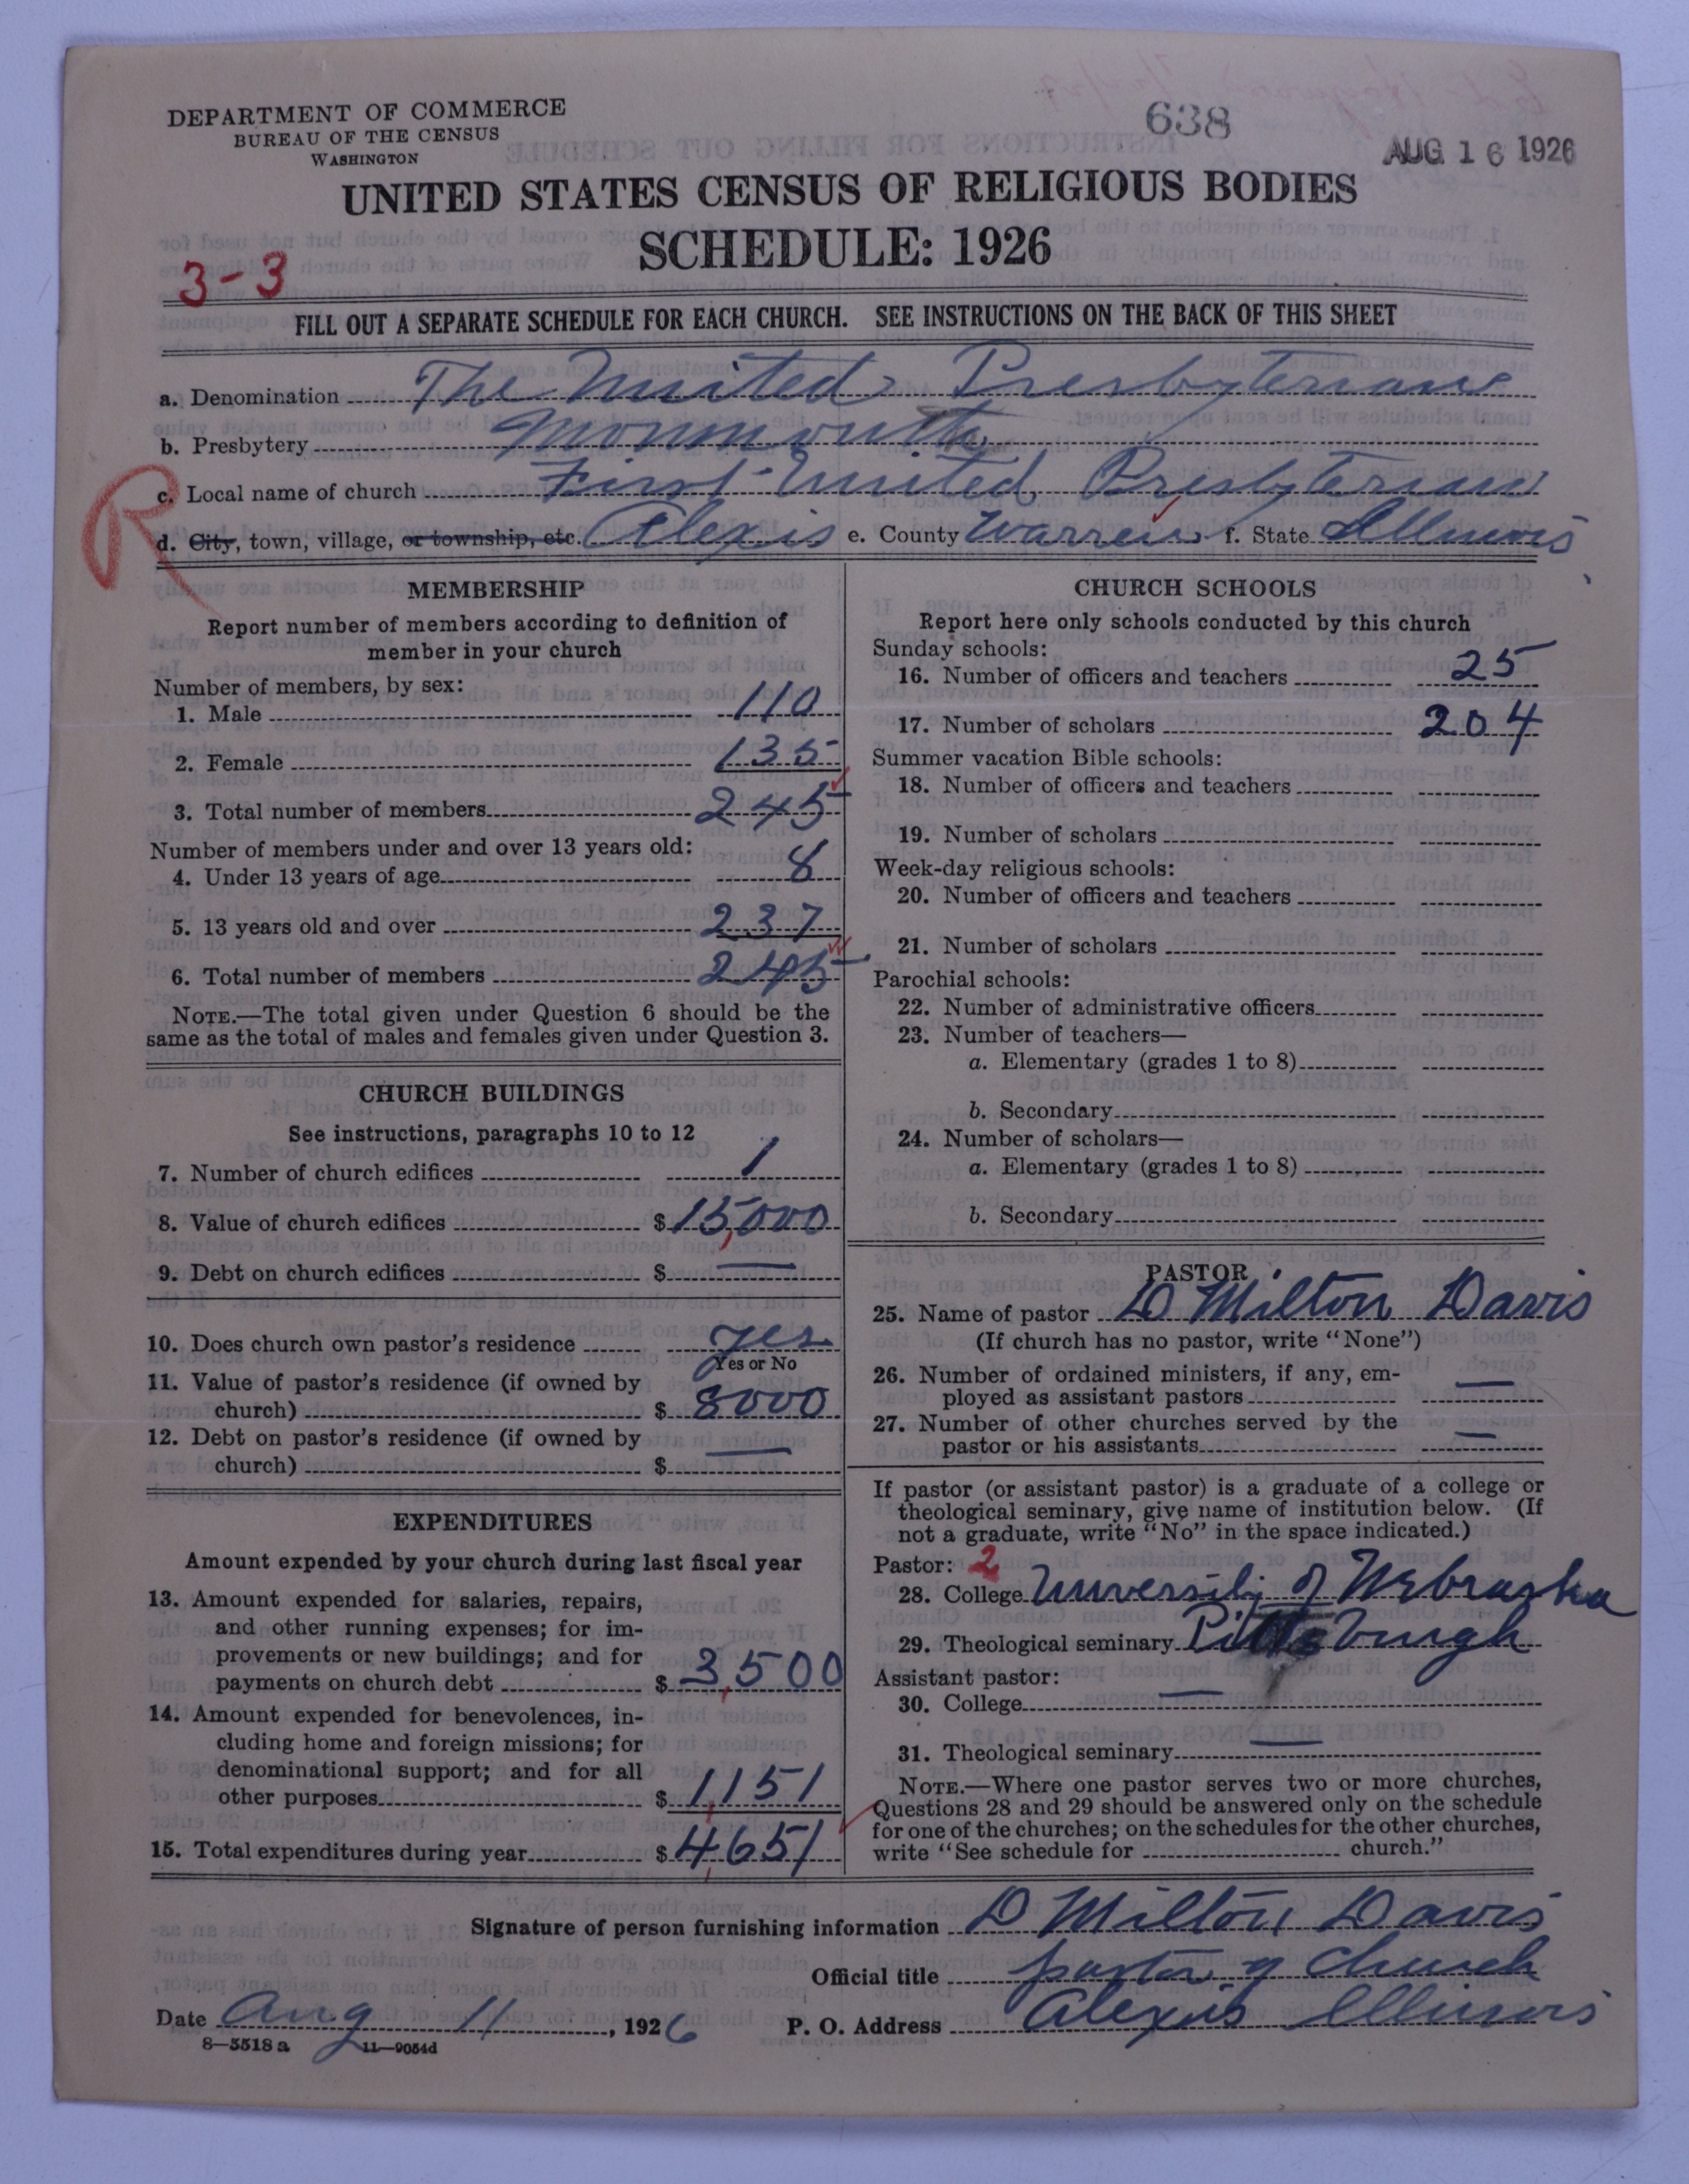 DEPARTMENT OF COMMERCE
BUREAU OF THE CENSUS
WASHINGTON
638
AUG 16 1926
UNITED STATES CENSUS OF RELIGIOUS BODIES
SCHEDULE: 1926
3-3
FILL OUT A SEPARATE SCHEDULE FOR EACH CHURCH. SEE INSTRUCTIONS ON THE BACK OF THIS SHEET
a. Denomination The United Presbyterian
b. Presbytery Monmouth
R
c. Local name of church First United Presbyterian
d. City, town, village, or township, etc. Alexis e. County Warren f. State Illinois
MEMBERSHIP
Report number of members according to definition of
member in your church
Number of members, by sex:
1. Male 110
2. Female 135
3. Total number of members 245
Number of members under and over 13 years old:
4. Under 13 years of age 8
5. 13 years old and over 237
6. Total number of members 245
NOTE.—The total given under Question 6 should be the
same as the total of males and females given under Question 3.
CHURCH BUILDINGS
See instructions, paragraphs 10 to 12
7. Number of church edifices 1
8. Value of church edifices $ 15,000
9. Debt on church edifices $ —
10. Does church own pastor's residence yes
Yes or No
11. Value of pastor's residence (if owned by
church) $ 8000
12. Debt on pastor's residence (if owned by
church) $ —
EXPENDITURES
Amount expended by your church during last fiscal year
13. Amount expended for salaries, repairs,
and other running expenses; for im-
provements or new buildings; and for
payments on church debt $ 3,500
14. Amount expended for benevolences, in-
cluding home and foreign missions; for
denominational support; and for all
other purposes $ 1,151
15. Total expenditures during year $ 4,651
CHURCH SCHOOLS
Report here only schools conducted by this church
Sunday schools:
16. Number of officers and teachers 25
17. Number of scholars 204
Summer vacation Bible schools:
18. Number of officers and teachers
19. Number of scholars
Week-day religious schools:
20. Number of officers and teachers
21. Number of scholars
Parochial schools:
22. Number of administrative officers
23. Number of teachers—
a. Elementary (grades 1 to 8)
b. Secondary
24. Number of scholars—
a. Elementary (grades 1 to 8)
b. Secondary
PASTOR
25. Name of pastor D Milton Davis
(If church has no pastor, write "None")
26. Number of ordained ministers, if any, em-
ployed as assistant pastors —
27. Number of other churches served by the
pastor or his assistants —
If pastor (or assistant pastor) is a graduate of a college or
theological seminary, give name of institution below. (If
not a graduate, write "No" in the space indicated.)
Pastor: 2
28. College University of Nebraska
29. Theological seminary Pittsburgh
Assistant pastor:
30. College —
31. Theological seminary —
NOTE.—Where one pastor serves two or more churches,
Questions 28 and 29 should be answered only on the schedule
for one of the churches; on the schedules for the other churches,
write "See schedule for church."
Signature of person furnishing information D Milton Davis
Official title pastor of church
Date Aug 11, 1926 P. O. Address Alexis Illinois
8—5518 a 11—9054d